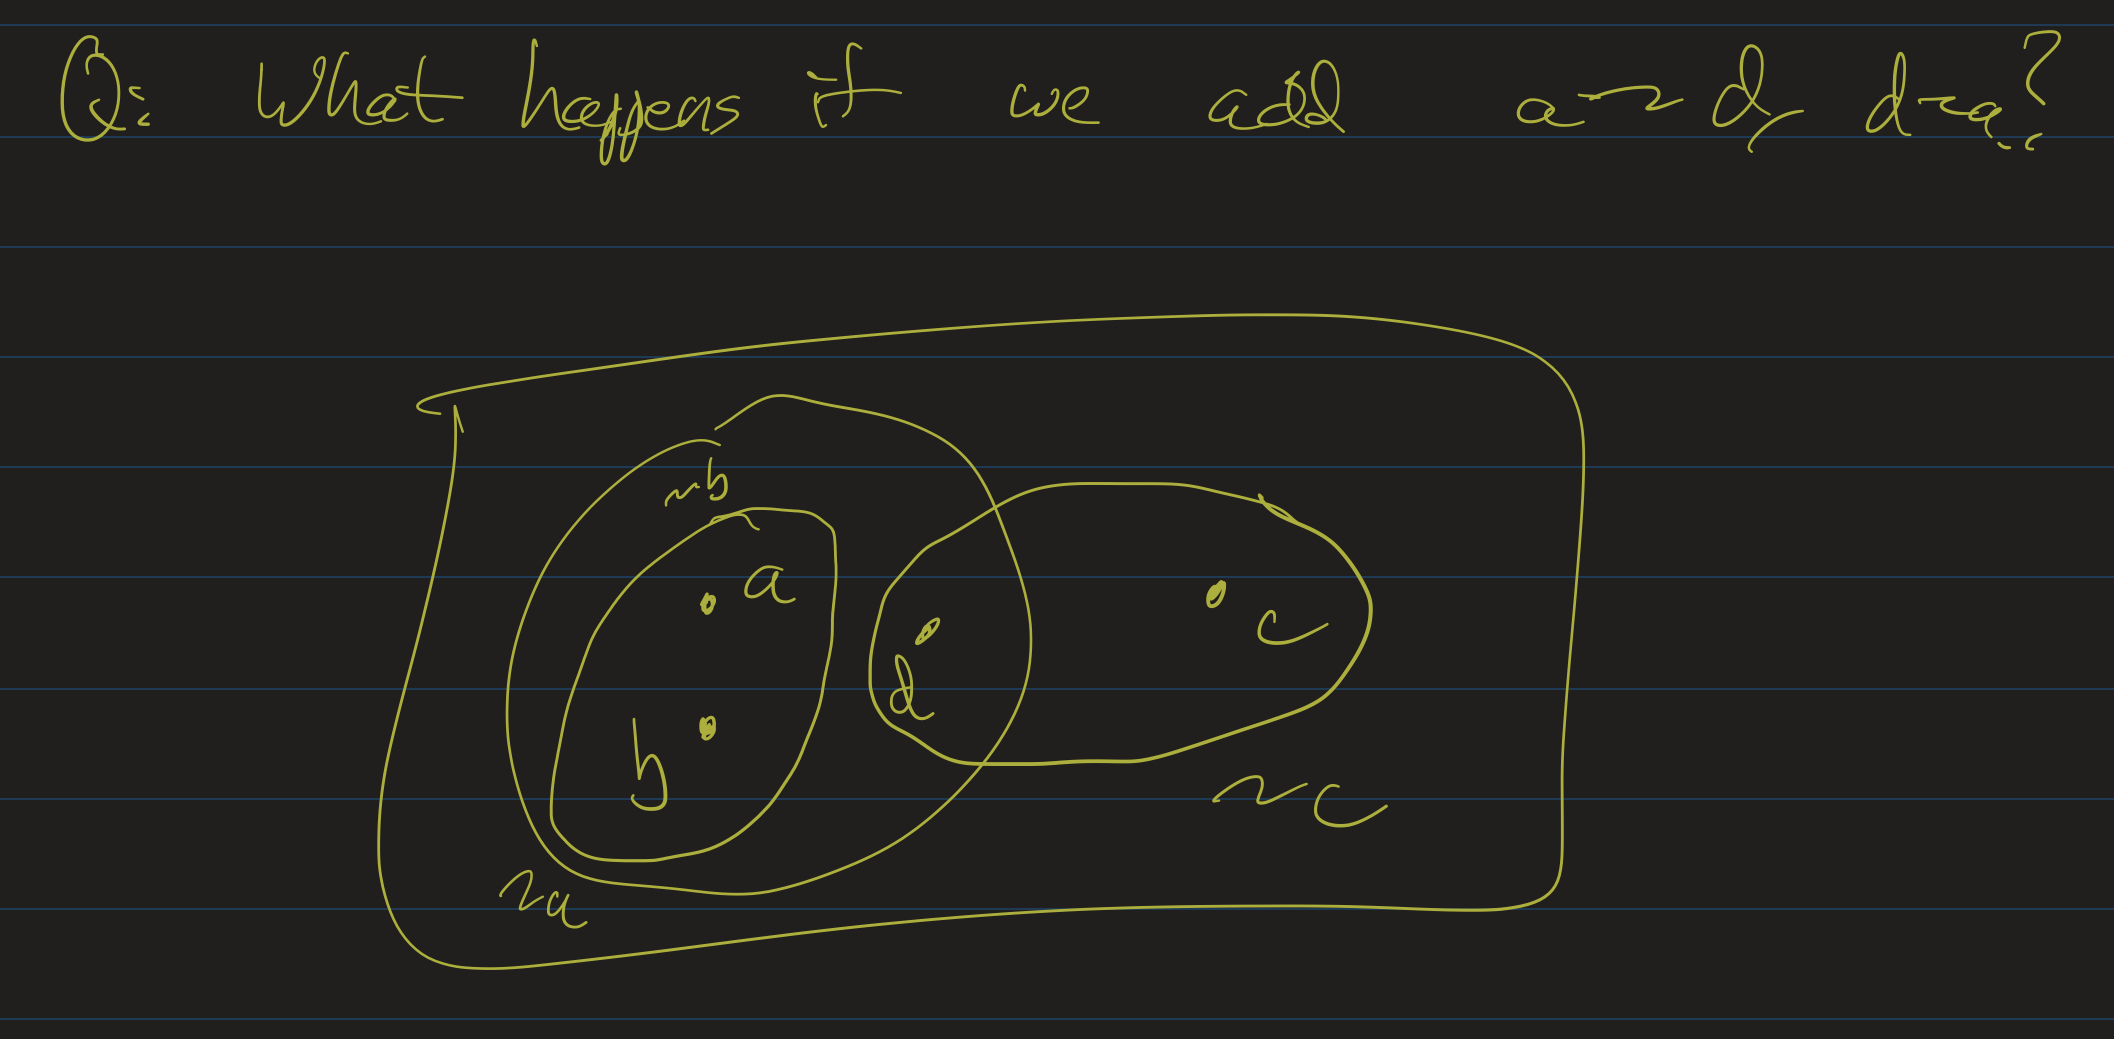 Q: What happens if we add a~d, d~a?
~b
a
c
d
b
~c
~a